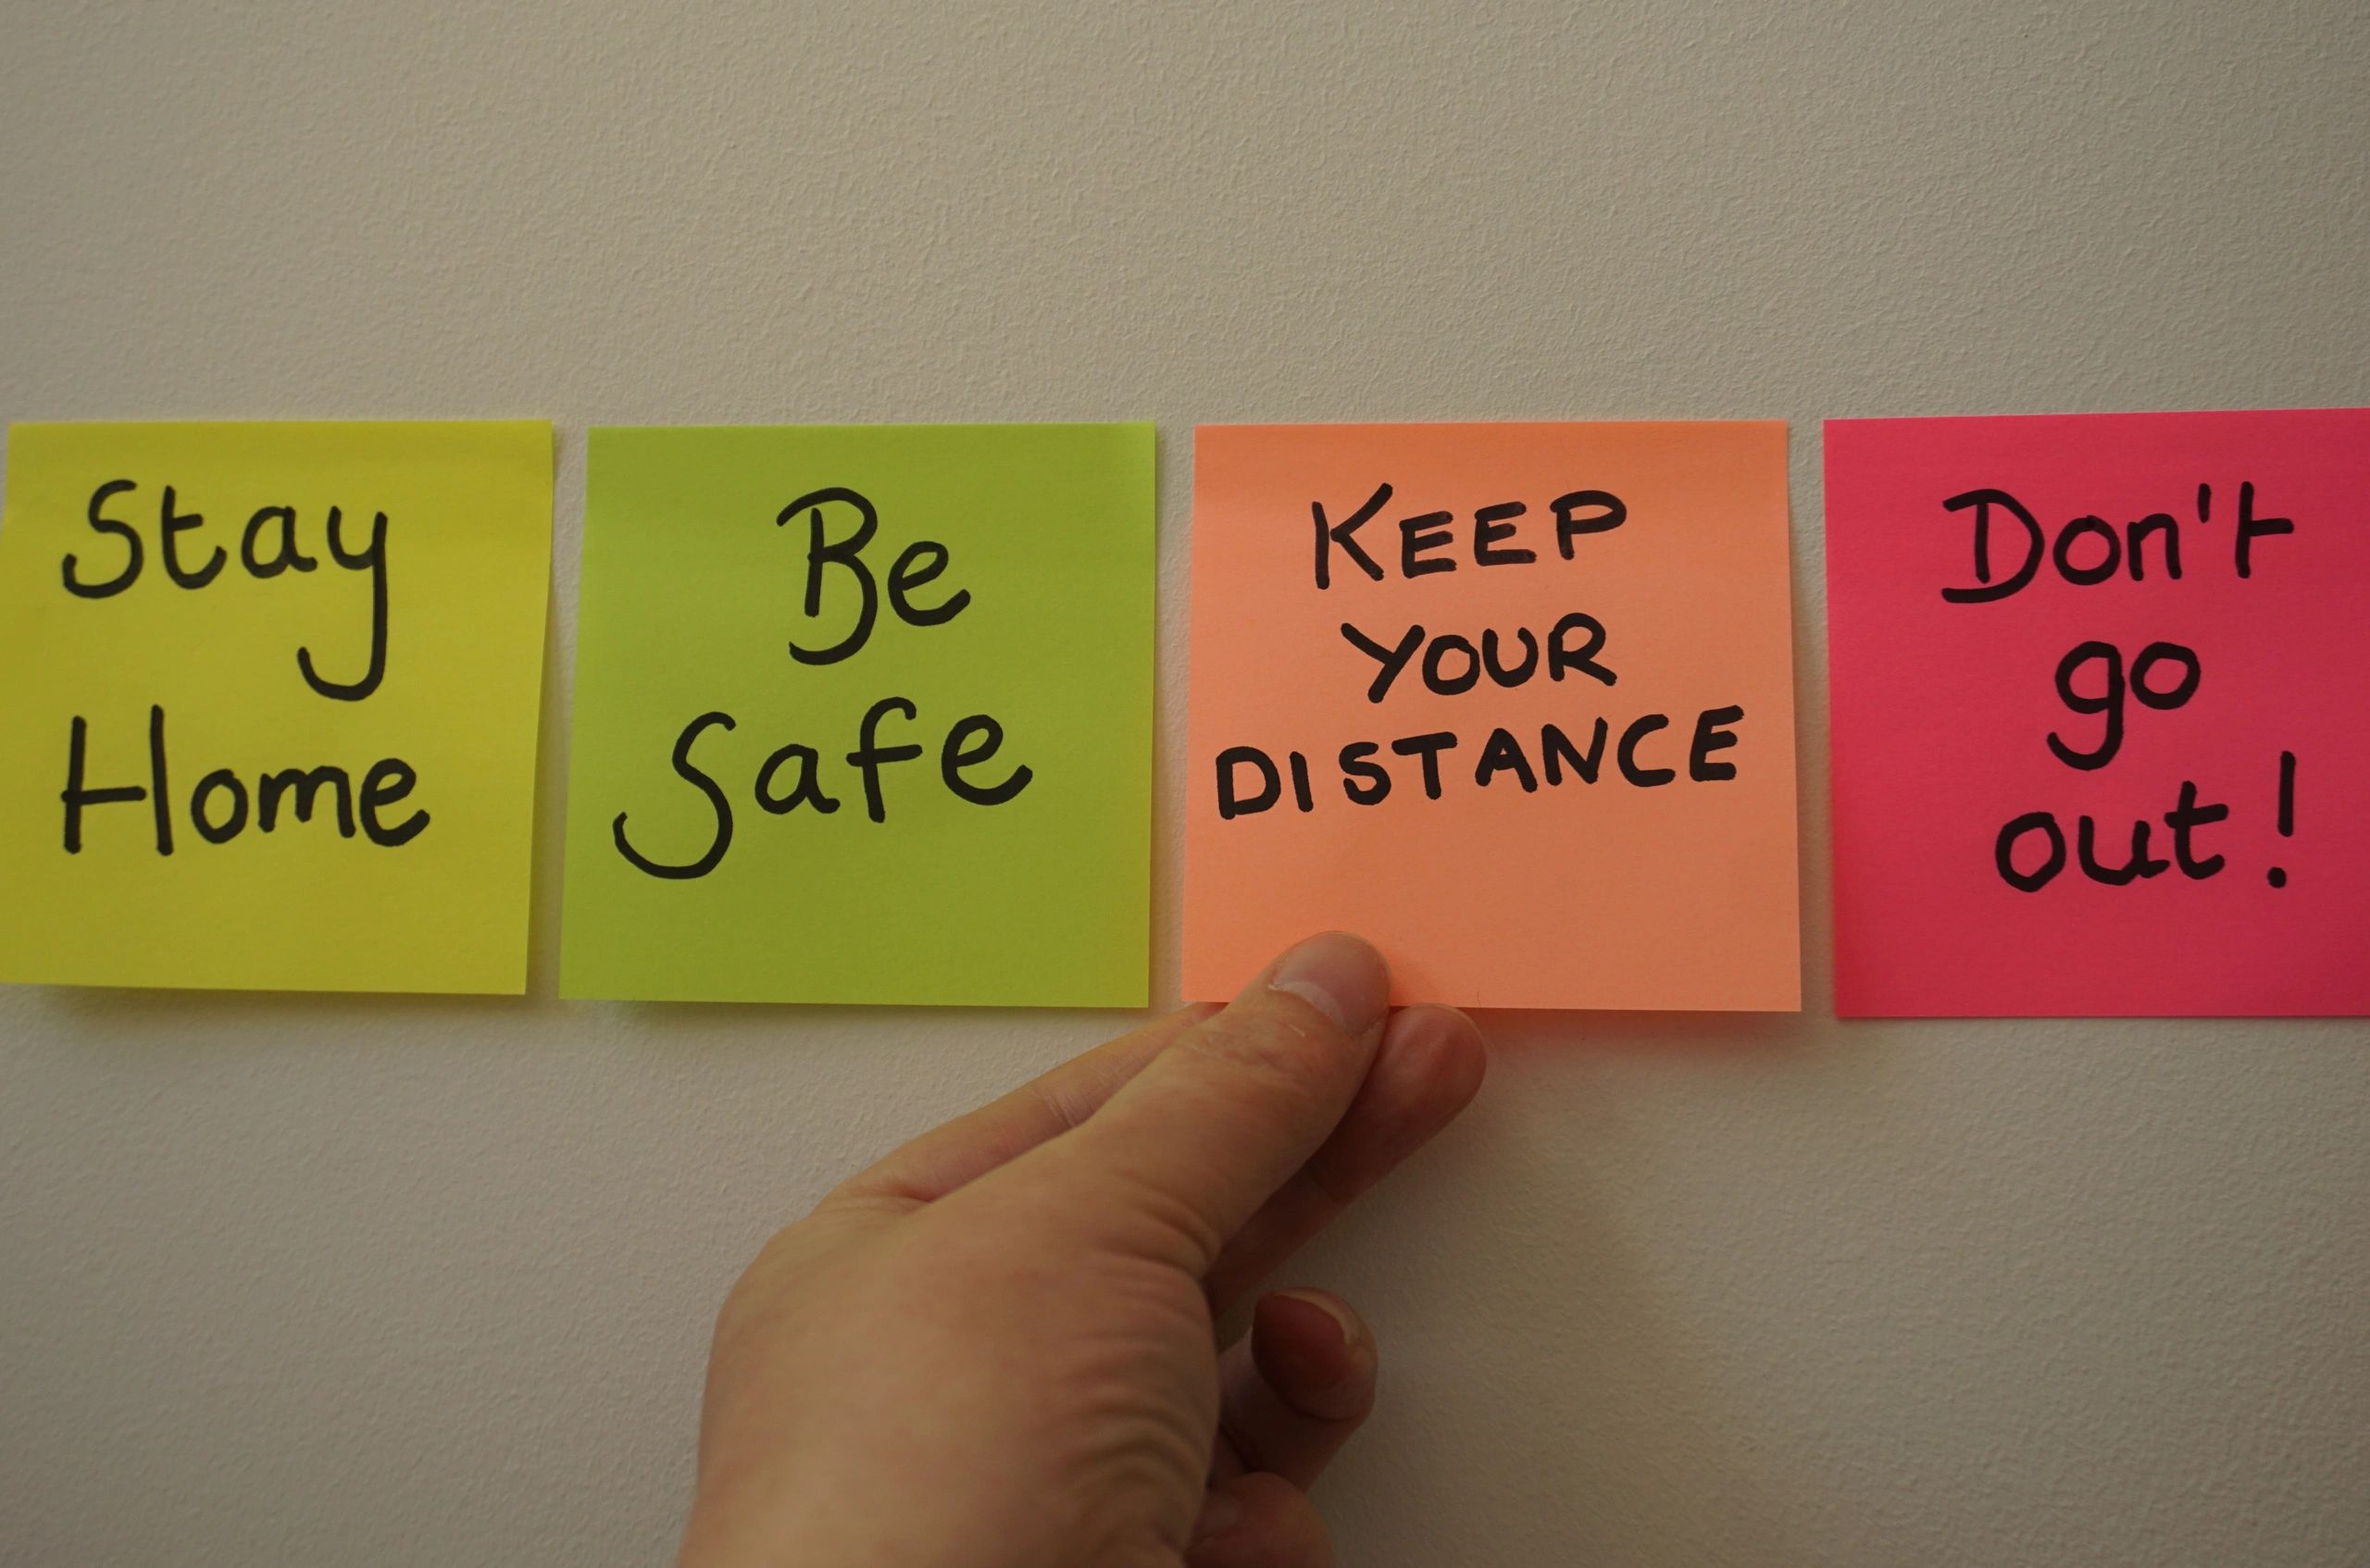 Stay
Home
Be
Safe
KEEP
YOUR
DISTANCE
Don't
go
out!